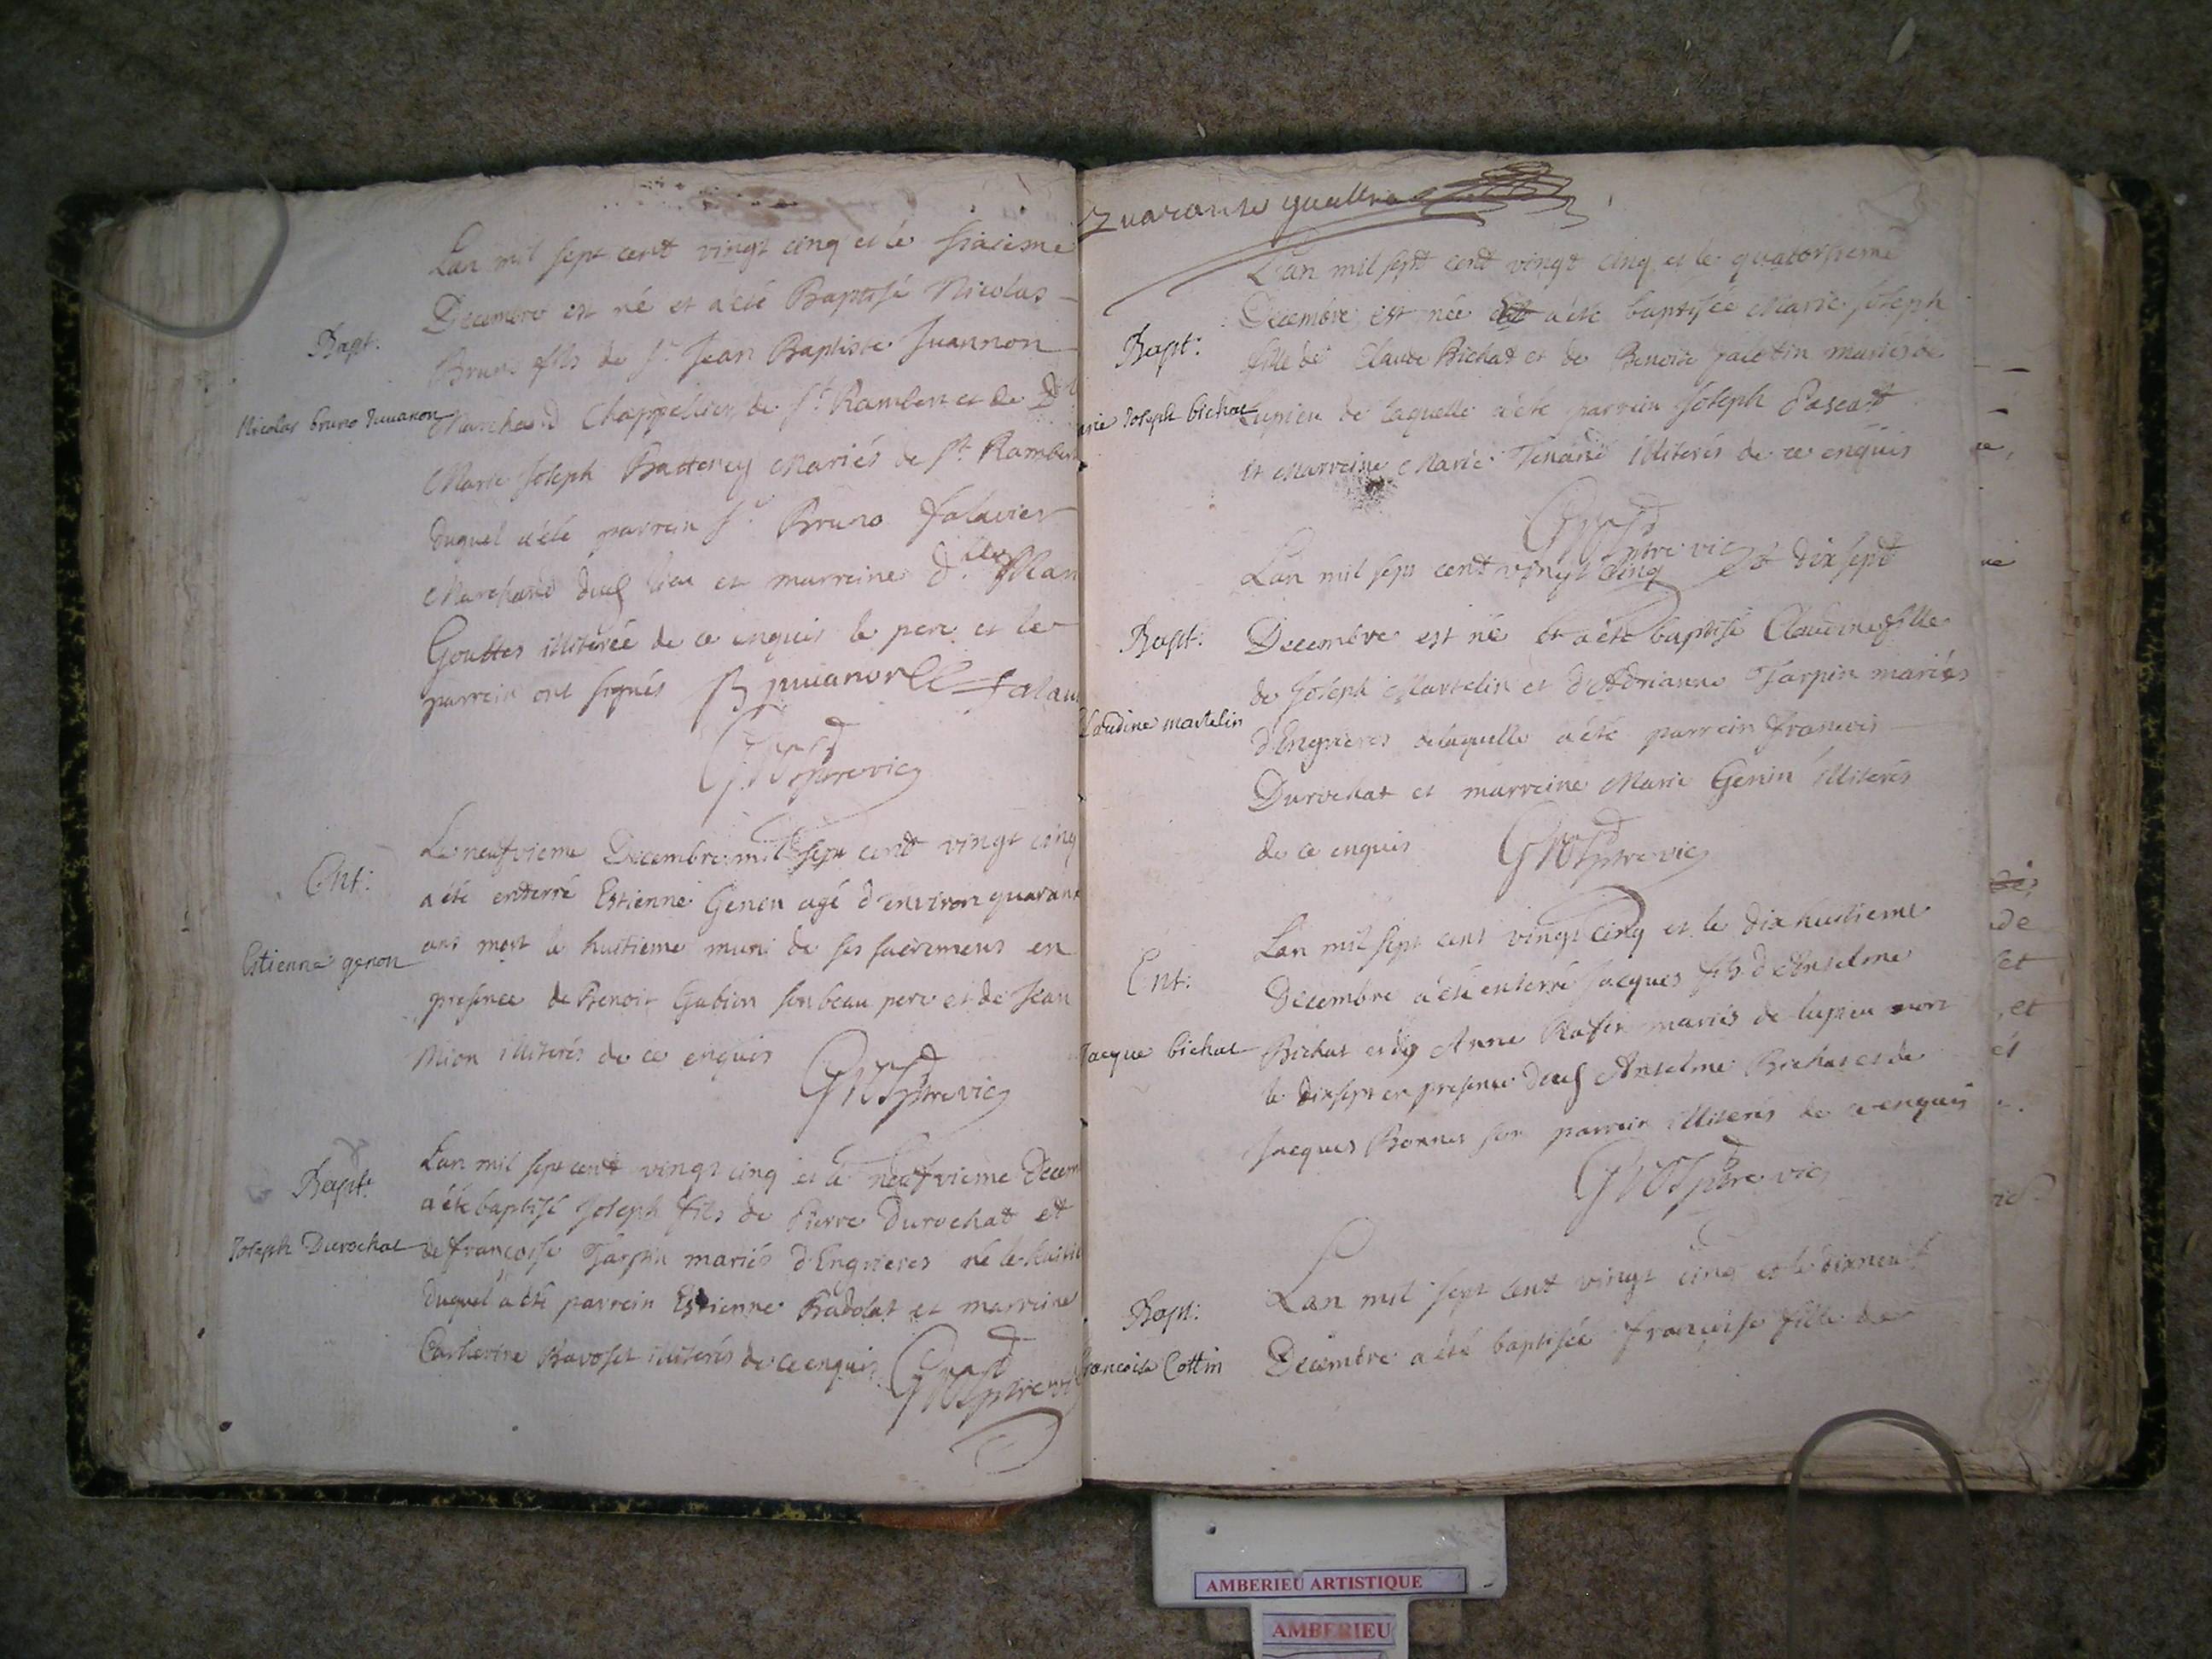 Lan mil sept cent vingt cinq et le sixieme
Decembre est né et a été Baptisé Nicolas
Bapt:
Bruno fils de Sr Jean Baptiste Juannon
Nicolas bruno Juuanon
Marchand Chappellier de St Rambert et de Dlle
Marie Joseph Battency Mariés de St Rambert
duquel a été parrein Sr Bruno falavier
Marchand dud lieu et marreine dlle
Gouttes illiterée de ce enquis le pere et le
parrein ont signés B juuanon falaui
ptre vic
Ent:
Le neufvieme Decembre mil sept cent vingt cinq
a été enterré Estienne Genon agé d'environ quarante
ans mort le huitieme muni de ses sacremens en
Estienne genon
presence de Benoit Gabion son beau pere et de Jean
Mion illiterés de ce enquis
ptre vic
Bapt:
Lan mil sept cent vingt cinq et le neufvieme Decem
a été baptisé Joseph fils de Pierre Durochat et
Joseph Durochat
de francoise Tarpin mariés d'Engrieres né le huiti
duquel a été parrein Estienne Badolat et marreine
Catherine Bavoset illiterés de ce enquis
ptre vic
quarante quattre
Lan mil sept cent vingt cinq et le quatorsieme
Decembre est née et a été baptisée Marie Joseph
Bapt:
fille de Claude Bichat et de Benoite Jacotin mariés de
arie Joseph bichat
Lupieu de laquelle a été parrein Joseph Pascat
et Marreine Marie Tenand illiterés de ce enquis
ptre vic
Lan mil sept cent vingt cinq et dix sept
Bapt:
Decembre est née et a été baptisé Claudine fille
de Joseph Martelin et d'Adrianne Tarpin mariés
Claudine martelin
d'Engrieres delaquelle a été parrein francois
Durochat et marreine Marie Genin illiterés
de ce enquis
ptre vic
Lan mil sept cent vingt cinq et le dix huitieme
Ent:
Decembre a été enterré Jacques fils d'Anselme
Jacque bichat
Bichat et de Anne Rafin mariés de lupieu mort
le dixsept en presence dud Anselme Bichat et de
Jacques Bonnet son parrein illiterés de ce enquis
ptre vic
Lan mil sept cent vingt cinq et le dixneuf
Bapt:
Decembre a été baptisée francoise fille de
francoise Cottin
AMBERIEU ARTISTIQUE
AMBERIEU